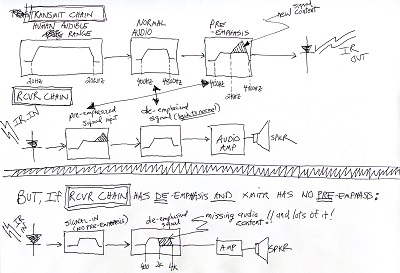 TRANSMIT CHAIN
HUMAN AUDIBLE
RANGE
NORMAL
AUDIO
PRE-
EMPHASIS
new
content
IR
OUT
20HZ
20KHZ
400HZ
4000HZ
400HZ
2KHZ
4000HZ
RCVR CHAIN
IR IN
pre-emphasized
signal input
de-emphasized
signal (back to normal)
AUDIO
AMP
SPKR
BUT, IF RCVR CHAIN HAS DE-EMPHASIS AND XMITR HAS NO PRE-EMPHASIS:
IR
IN
SIGNAL-IN
(NO PRE-EMPHASIS)
de-emphasized
signal
missing audio
content!! and lots of it!
400
2K
4K
AMP
SPKR